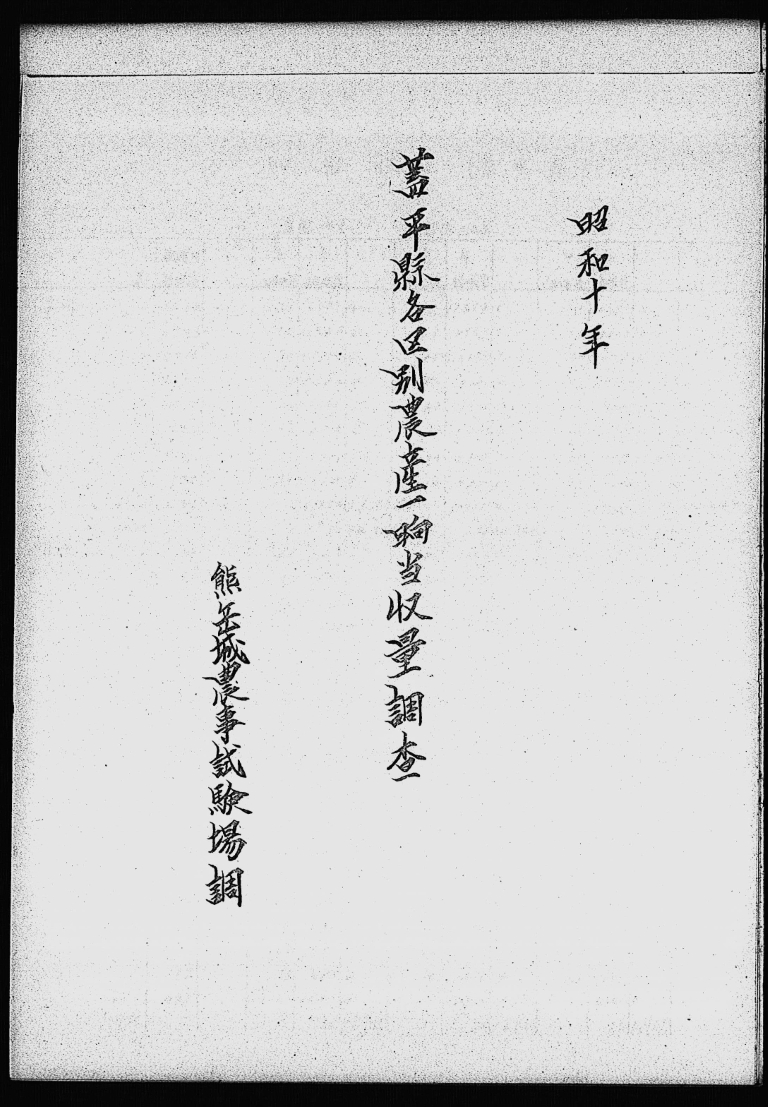 昭和十年
蓋平縣各区別農産一晌当収量調査
熊岳城農事試験場調